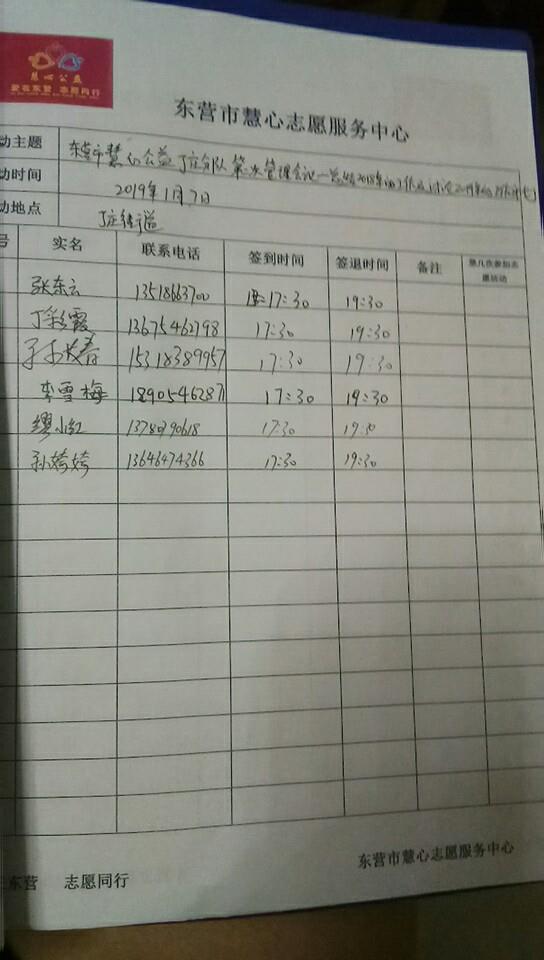 慧心公益
爱在东营 志愿同行
东营市慧心志愿服务中心
动主题 东营市慧心公益丁庄分队第一次管理会议一总结2018年的工作及讨论2019年的
动时间 2019年1月7日
动地点 丁庄街道
号 实名 联系电话 签到时间 签退时间 备注 第几次参加志愿活动
张东云 13518663700 17:30 19:30
丁彩霞 13675462798 17:30 19:30
长春 15318389957 17:30 19:30
李雪梅 18905462871 17:30 19:30
缪小红 17:30 19:30
孙娇娇 13646474366 17:30 19:30
东营市慧心志愿服务中心
东营 志愿同行